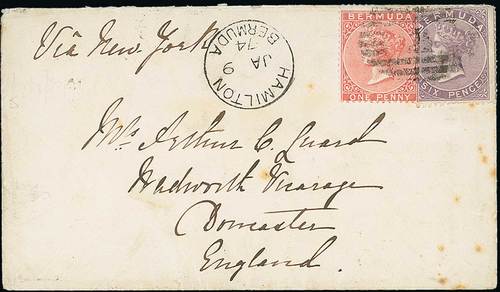 Via New York
HAMILTON
BERMUDA
9
JA
74
BERMUDA
ONE PENNY
BERMUDA
SIX PENCE
Mrs Arthur C. Guard
Wadworth Vicarage
Doncaster
England.